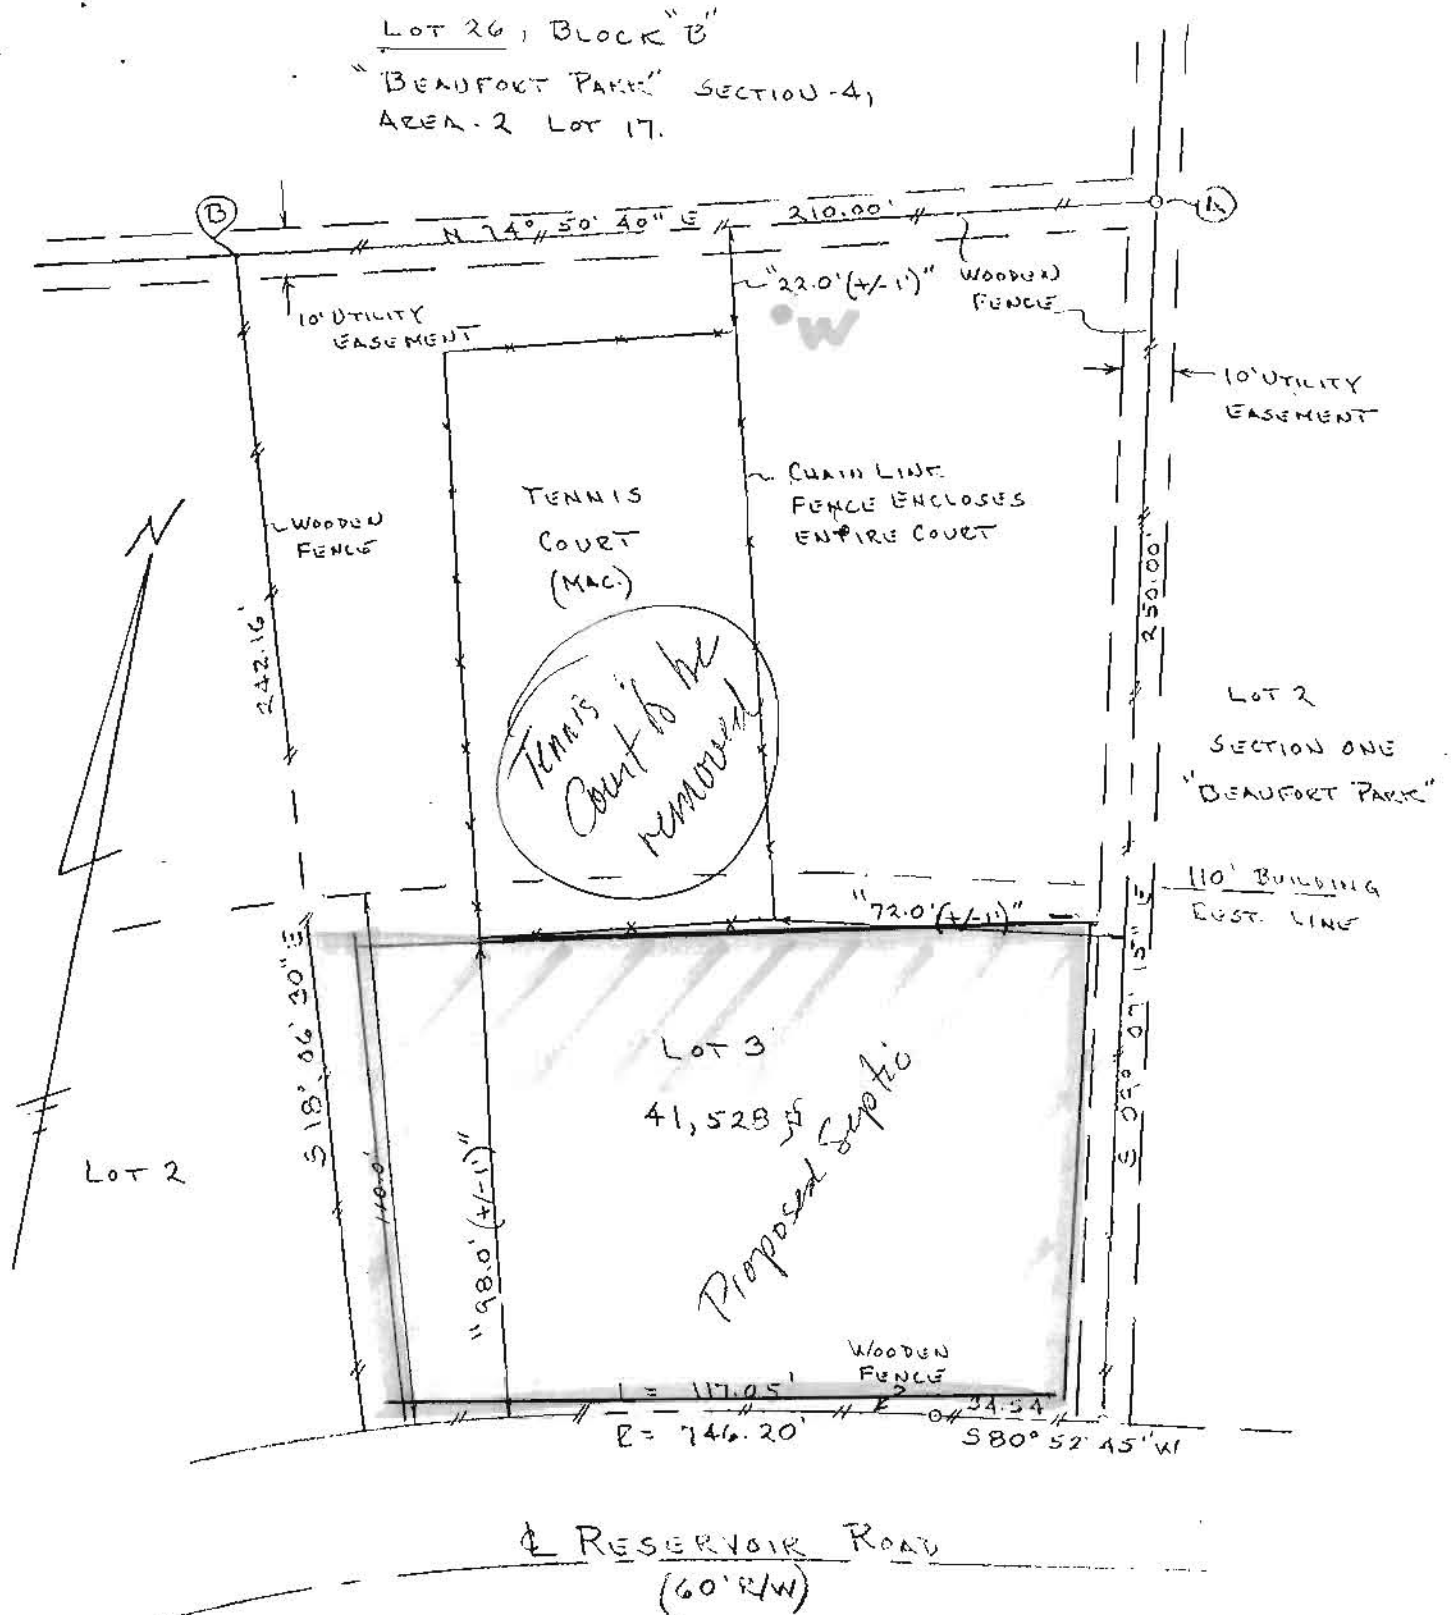 LOT 26, BLOCK "B"
"BEAUFORT PARK" SECTION-4,
AREA-2 LOT 17.
B
N 74° 50' 40" E
210.00'
A
10' UTILITY
EASEMENT
"22.0' (+/-1')"
WOODEN
FENCE
W
10' UTILITY
EASEMENT
WOODEN
FENCE
TENNIS
COURT
(MAC.)
CHAIN LINE
FENCE ENCLOSES
ENTIRE COURT
N
242.16'
250.00'
Tennis
Court to be
removed
LOT 2
SECTION ONE
"BEAUFORT PARK"
110' BUILDING
REST. LINE
"72.0' (+/-1')"
S 18° 06' 30" E
S 09° 07' 15" E
LOT 3
41,528
Proposed Septic
LOT 2
110.0'
"98.0' (+/-1')"
WOODEN
FENCE
L = 117.05'
34.54'
R = 746.20'
S 80° 52' 45" W
℄ RESERVOIR ROAD
(60' R/W)